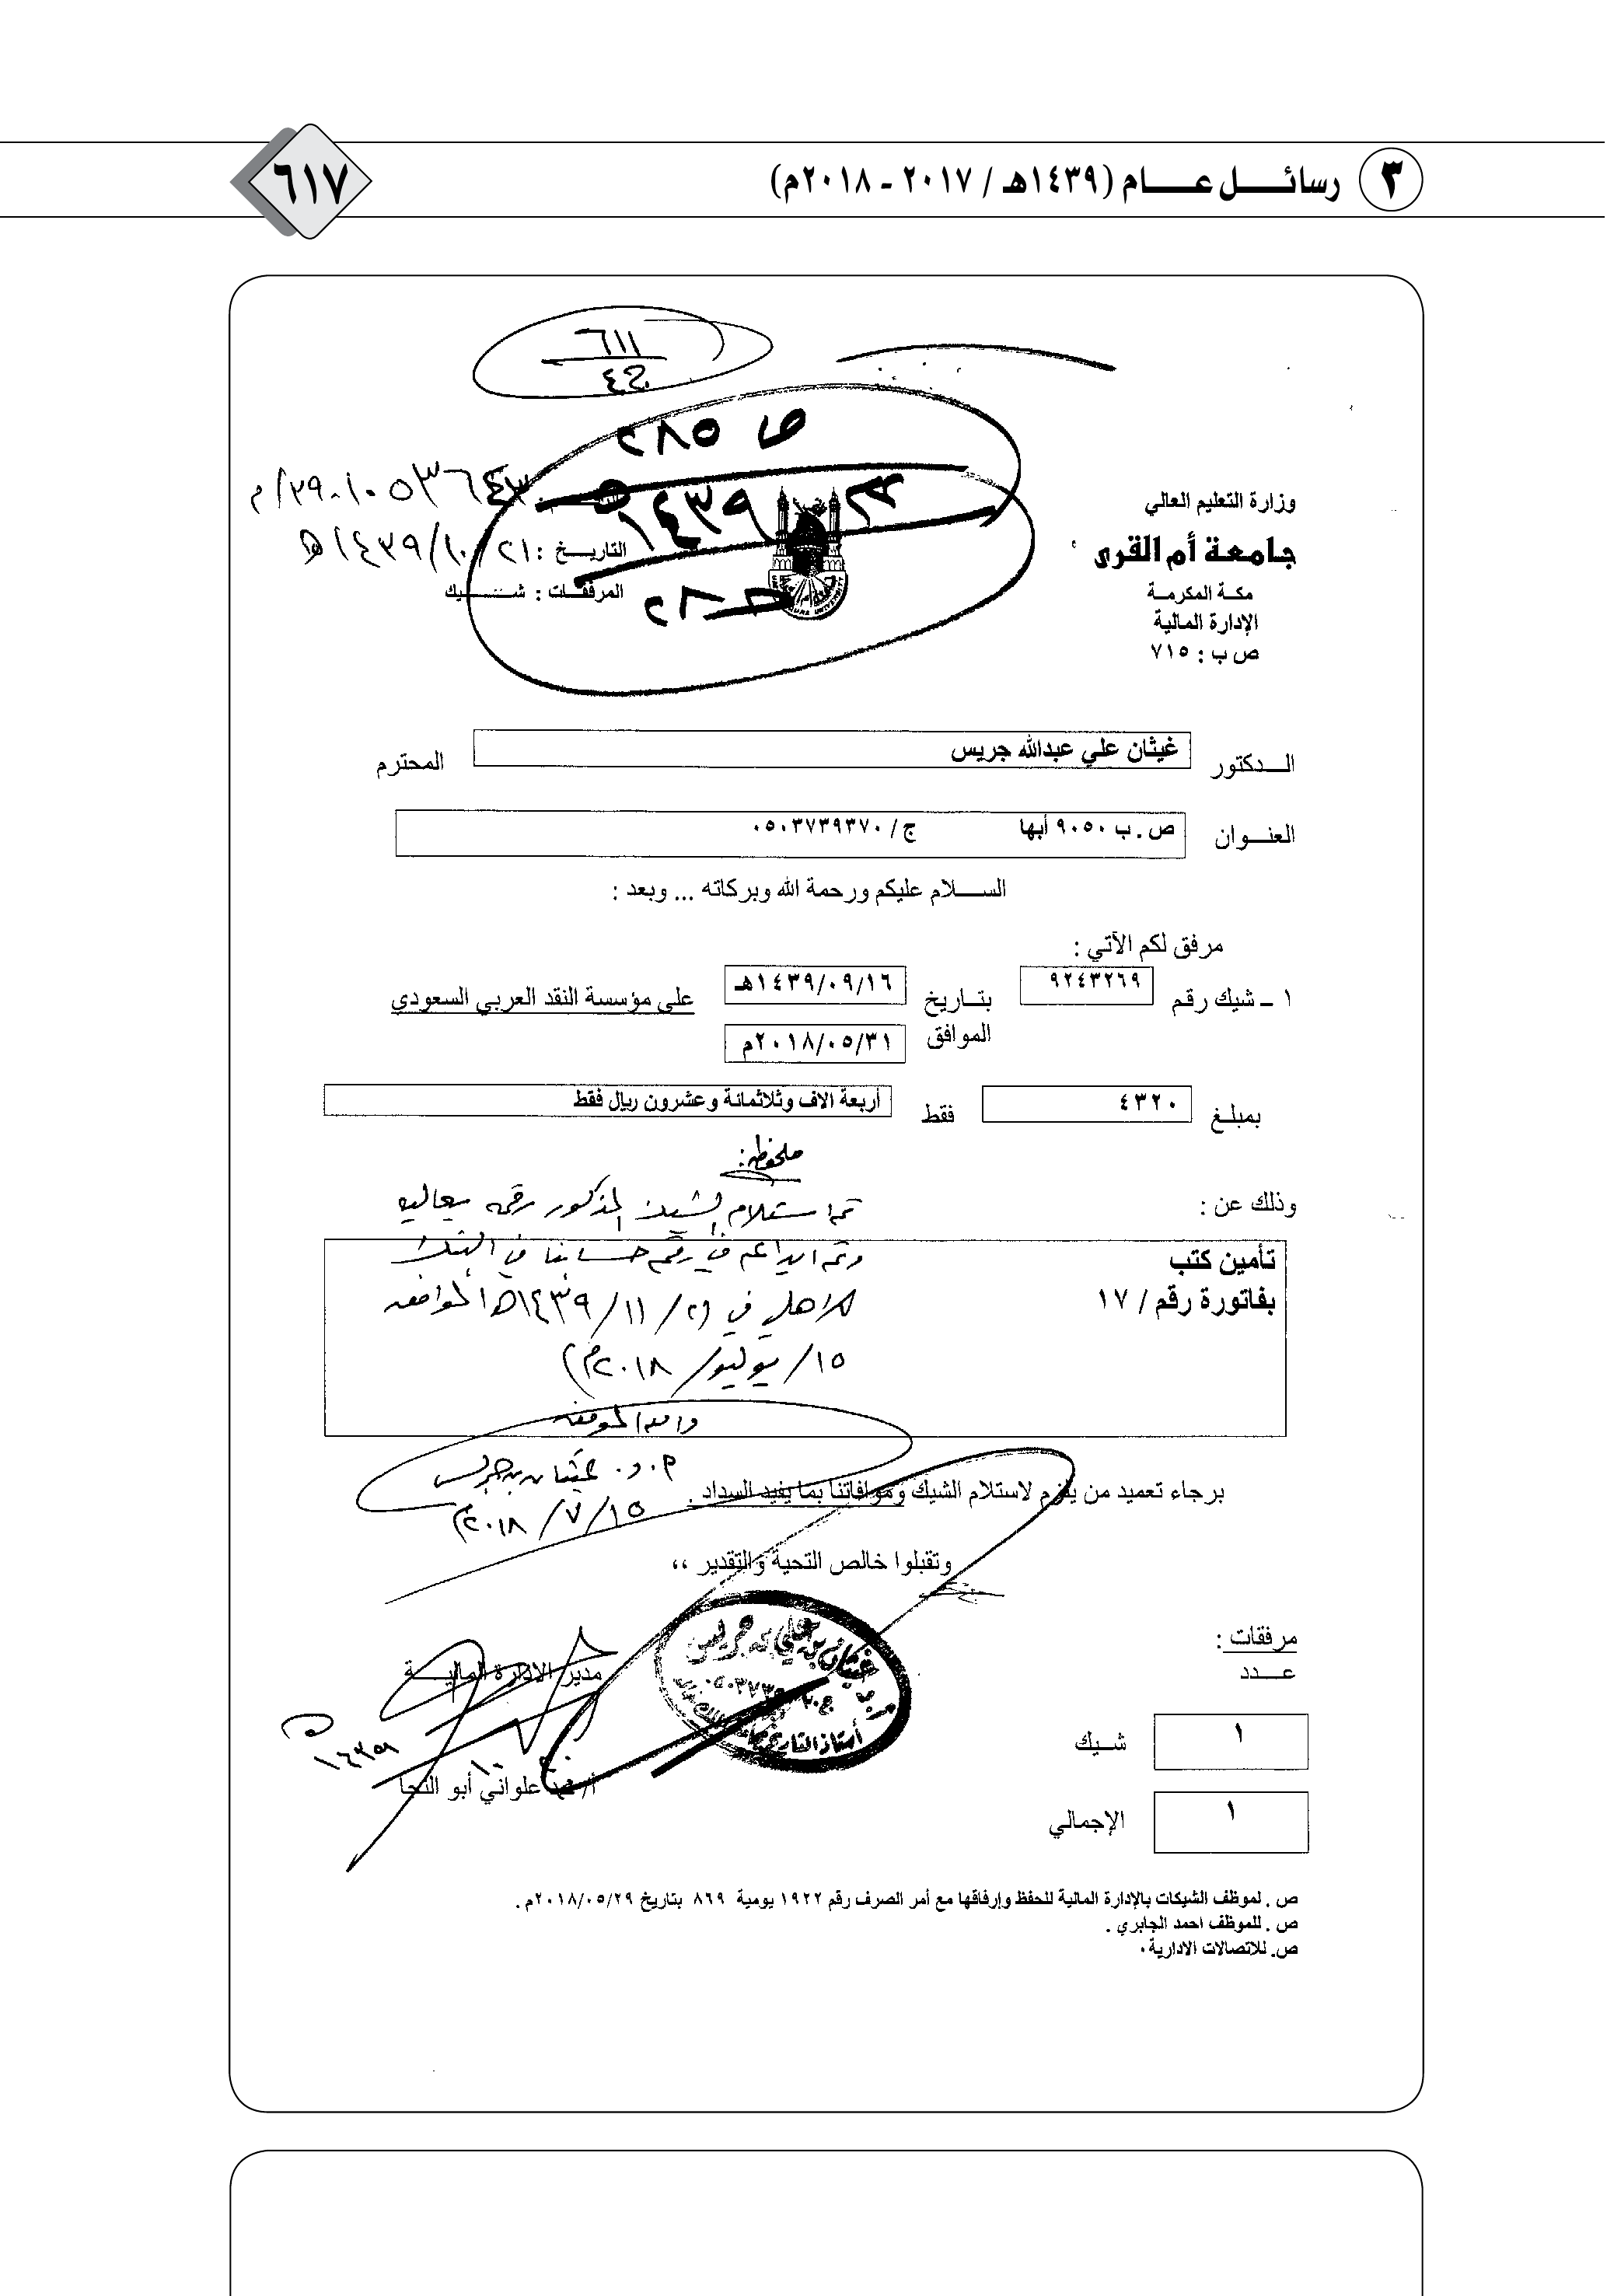 ٣ رسائل عام (١٤٣٩هـ / ٢٠١٧ - ٢٠١٨م)
٦١٧
٦١١
٤٢
ص ٢٨٥
١٤٣٩
وزارة التعليم العالي
جامعة أم القرى
مكة المكرمة
الإدارة المالية
ص ب : ٧١٥
التاريخ : ٢١/١٠/١٤٣٩هـ
المرفقات : شيك
الدكتور غيثان علي عبدالله جريس المحترم
العنوان ص . ب ٩٠٥٠ أبها ج / ٠٥٠٣٧٣٩٣٧٠
السلام عليكم ورحمة الله وبركاته ... وبعد :
مرفق لكم الآتي :
١ - شيك رقم ٩٢٤٣٢٦٩ بتاريخ ١٤٣٩/٠٩/١٦هـ على مؤسسة النقد العربي السعودي
الموافق ٢٠١٨/٠٥/٣١م
بمبلغ ٤٣٢٠ فقط أربعة الاف وثلاثمائة وعشرون ريال فقط
ملحوظه :
وذلك عن :
تم استلام الشيك المذكور رقمه بعاليه
وتم ايداعه في رقم حسابنا في البنك
الاهلي في (٢/١١/١٤٣٩هـ الموافق
١٥/يوليو/٢٠١٨م)
تأمين كتب
بفاتورة رقم / ١٧
والله الموفق
أ.د. غيثان بن جريس
١٥/٧/٢٠١٨م
برجاء تعميد من يلزم لاستلام الشيك وموافاتنا بما يفيد السداد .
وتقبلوا خالص التحية والتقدير ،،
أ.د. غيثان بن علي بن جريس
أستاذ التاريخ
مدير الادارة المالية
علواني أبو النجا
مرفقات :
عدد
١ شيك
١ الإجمالي
ص . لموظف الشيكات بالإدارة المالية للحفظ وإرفاقها مع أمر الصرف رقم ١٩٢٢ يومية ٨٦٩ بتاريخ ٢٠١٨/٠٥/٢٩م .
ص . للموظف احمد الجابري .
ص. للاتصالات الادارية٠